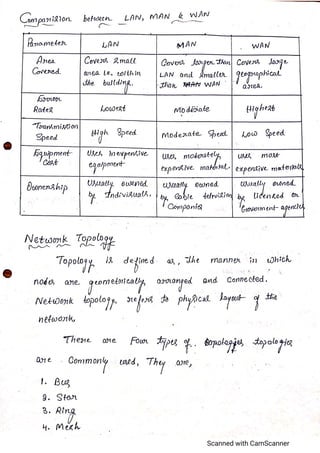 Comparision between LAN, MAN & WAN
Parameter LAN MAN WAN
Area Covered. Covers small area i.e. within the building. Covers larger than LAN and smaller than WAN Covers large geographical area.
Error Rates Lowest Moderate Highest
Transmission Speed High Speed Moderate Speed Low Speed
Equipment Cost Uses inexpensive equipment Uses moderately expensive material. Uses most expensive materials
Ownership Usually owned by Individuals. usually owned by Cable television Companies Usually owned by licenced or Government agencies
Network Topology
Topology is defined as, The manner in which
nodes are geometrically arranged and Connected.
Network topology refers to physical layout of the
network.
There are Four types of topologies
are Commonly used, They are,
1. Bus
2. Star
3. Ring
4. Mesh
Scanned with CamScanner